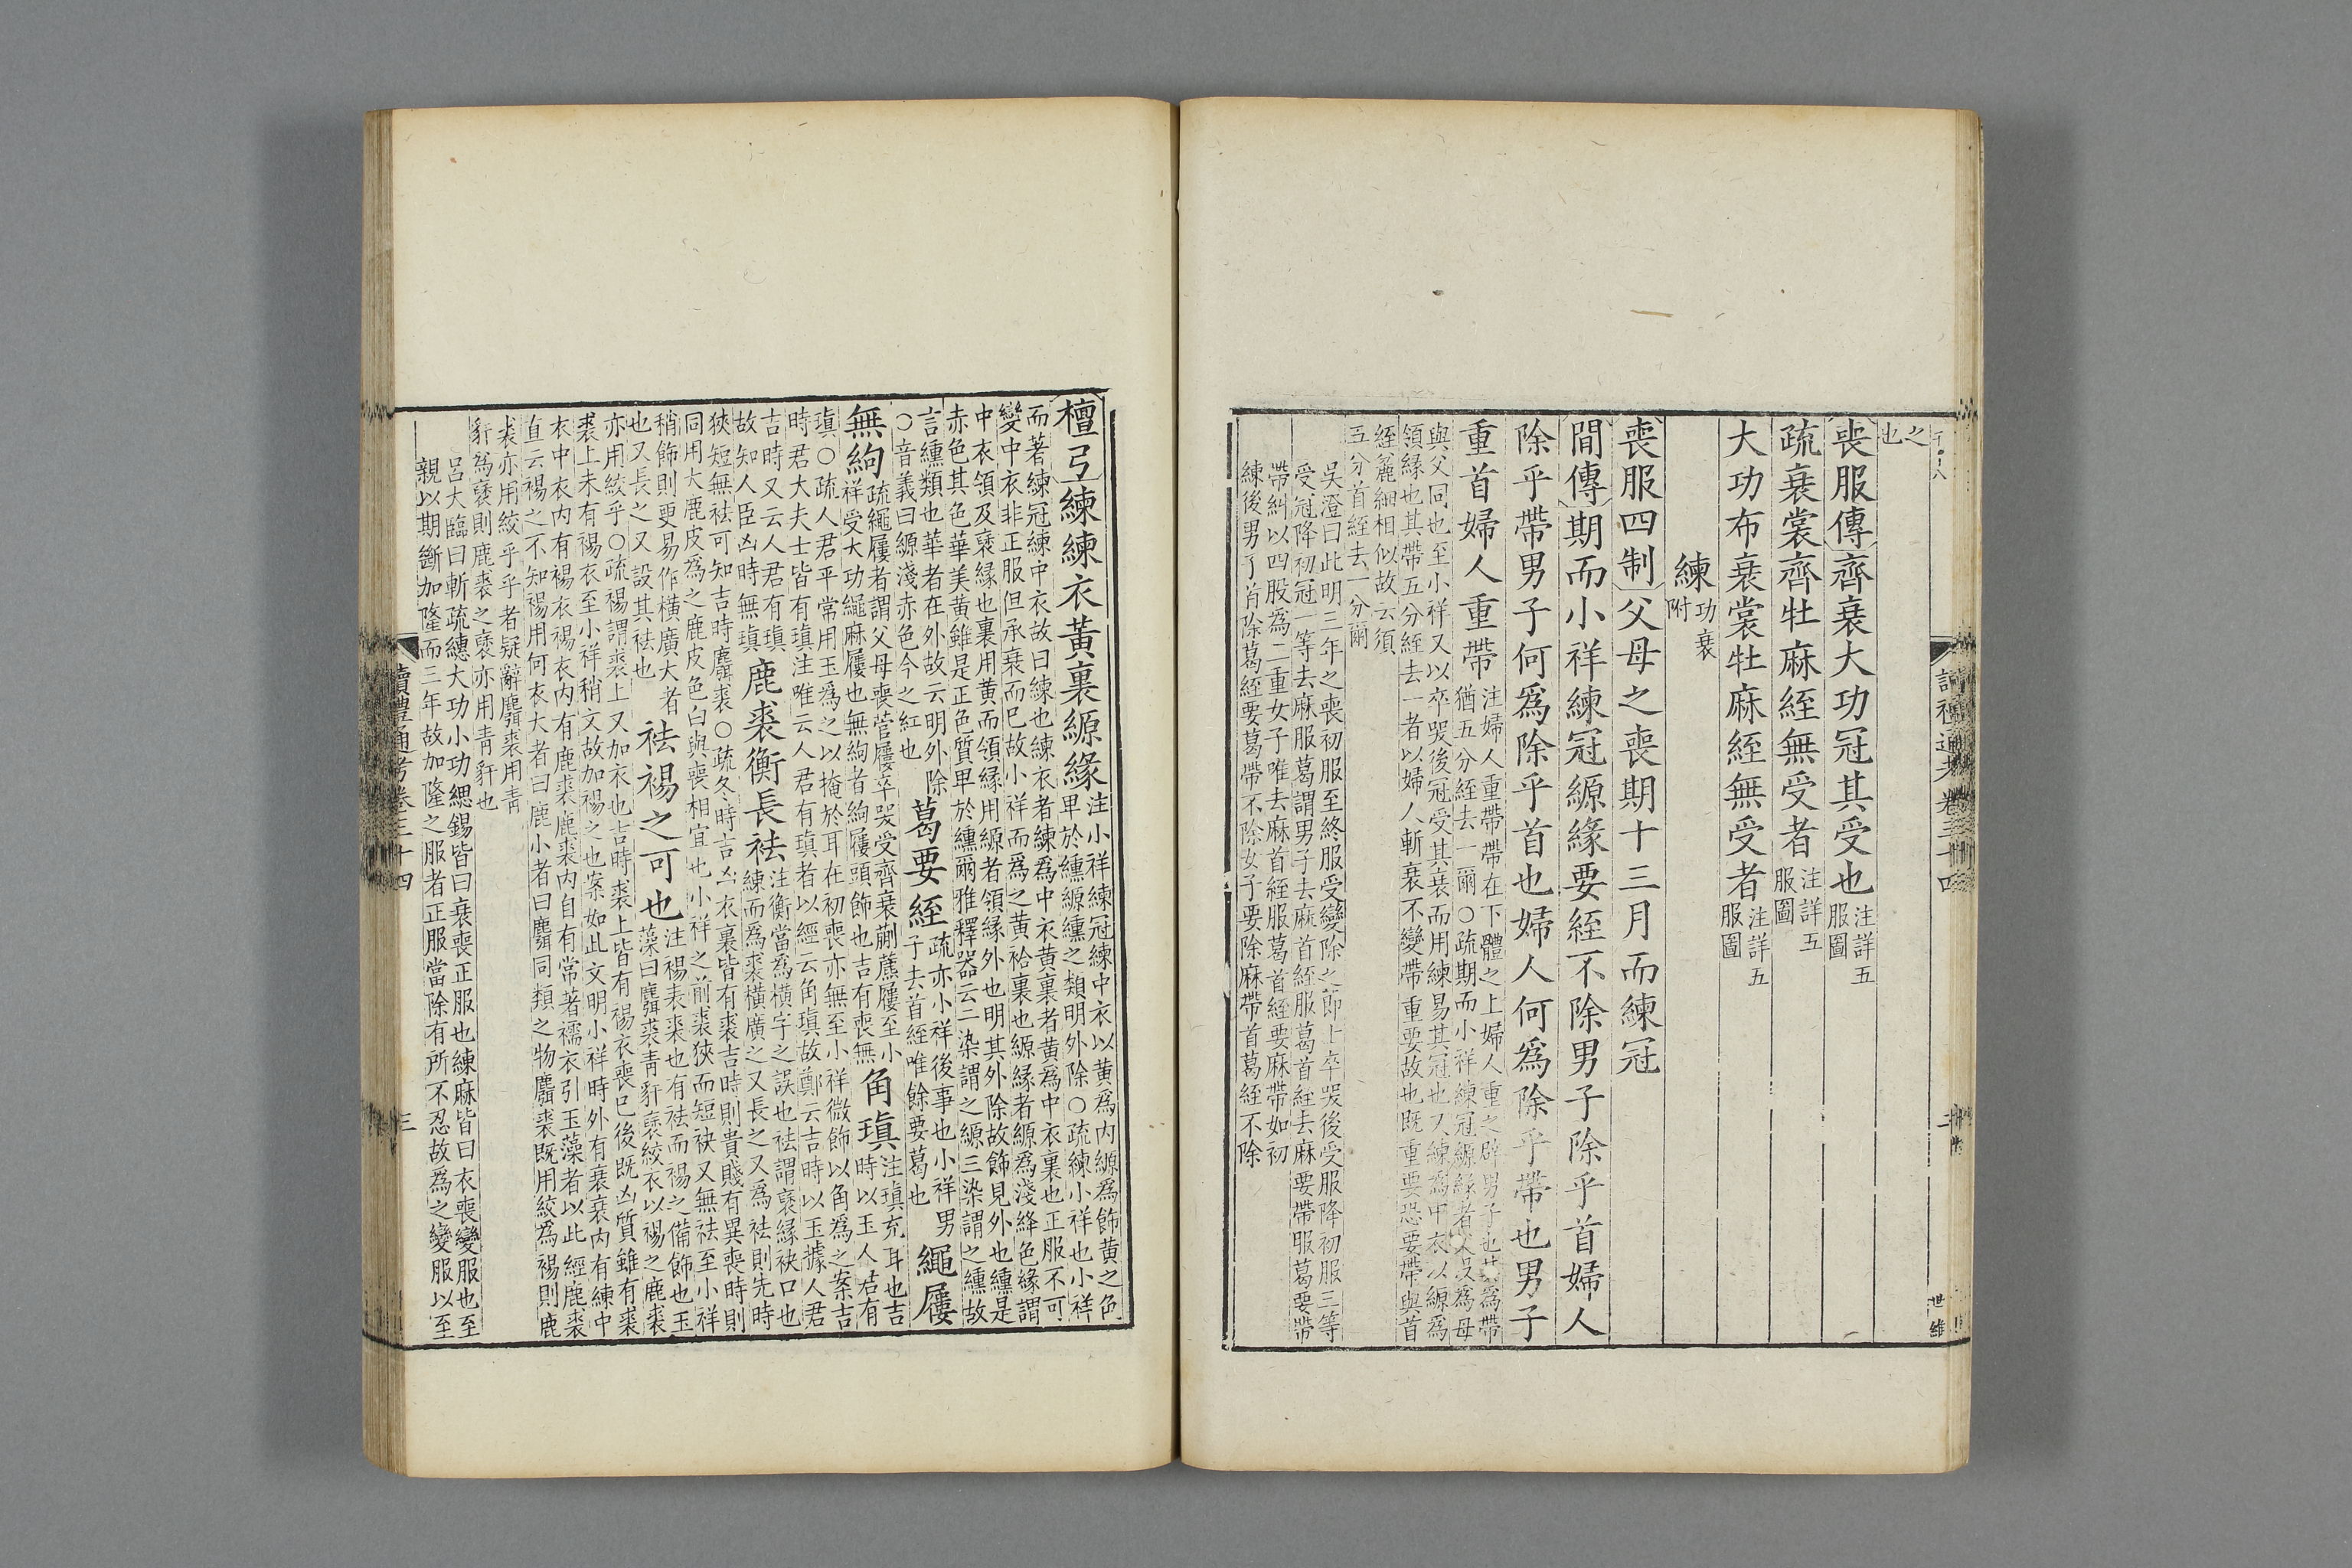 之
也
喪服傳齊衰大功冠其受也注詳五服圖
疏衰裳齊牡麻絰無受者注詳五服圖
大功布衰裳牡麻絰無受者注詳五服圖
練功衰附
喪服四制父母之喪期十三月而練冠
閒傳期而小祥練冠縓緣要絰不除男子除乎首婦人
除乎帶男子何爲除乎首也婦人何爲除乎帶也男子
重首婦人重帶注婦人重帶帶在下體之上婦人重之辟男子也其爲帶
猶五分絰去一爾○疏期而小祥練冠縓緣者父沒爲母
與父同也至小祥又以卒哭後冠受其衰而用練易其冠也又練爲中衣以縓爲
領緣也其帶五分絰去一者以婦人斬衰不變帶重要故也既重要恐要帶與首
絰麤細相似故云須
五分首絰去一分爾
吳澄曰此明三年之喪初服至終服受變除之節上卒哭後受服降初服三等
受冠降初冠一等去麻服葛謂男子去麻首絰服葛首絰去麻要帶服葛要帶
帶糾以四股爲二重女子唯去麻首絰服葛首絰要麻帶如初
練後男子首除葛絰要葛帶不除女子要除麻帶首葛絰不除
讀禮通考卷三十四
二
世維
檀弓練練衣黃裏縓緣注小祥練冠練中衣以黃爲內縓爲飾黃之色
卑於纁縓纁之類明外除○疏練小祥也小祥
而著練冠練中衣故曰練也練衣者練爲中衣黃裏者黃爲中衣裏也正服不可
變中衣非正服但承衰而已故小祥而爲之黃袷裏也縓緣者縓爲淺絳色緣謂
中衣領及褎緣也裏用黃而領緣用縓者領緣外也明其外除故飾見外也纁是
赤色其色華美黃雖是正色質卑於纁爾雅釋器云一染謂之縓三染謂之纁故
言纁類也華者在外故云明外除葛要絰疏亦小祥後事也小祥男
○音義曰縓淺赤色今之紅也子去首絰唯餘要葛也繩屨
無絇疏繩屨者謂父母喪菅屨卒哭受齊衰蒯藨屨至小
祥受大功繩麻屨也無絇者絇屨頭飾也吉有喪無角瑱注瑱充耳也吉
時以玉人君有
瑱○疏人君平常用玉爲之以掩於耳在初喪亦無至小祥微飾以角爲之案吉
時君大夫士皆有瑱注唯云人君有瑱者以經云角瑱故鄭云吉時以玉據人君
吉時又云人君有瑱
故知人臣凶時無瑱鹿裘衡長袪注衡當爲橫字之誤也袪謂褎緣袂口也
練而爲裘橫廣之又長之又爲袪則先時
狹短無袪可知吉時麛裘○疏冬時吉凶衣裏皆有裘吉時則貴賤有異喪時則
同用大鹿皮爲之鹿皮色白與喪相宜也小祥之前裘狹而短袂又無袪至小祥
稍飾則更易作橫廣大者
也又長之又設其袪也袪裼之可也注裼表裘也有袪而裼之備飾也玉
藻曰麛裘青豻褎絞衣以裼之鹿裘
亦用絞乎○疏裼謂裘上又加衣也吉時裘上皆有裼衣喪已後既凶質雖有裘
裘上未有裼衣至小祥稍文故加裼之也案如此文明小祥時外有衰衰內有練中
衣中衣內有裼衣裼衣內有鹿裘鹿裘內自有常著襦衣引玉藻者以此經鹿裘
直云裼之不知裼用何衣大者曰鹿小者曰麛同類之物麛裘既用絞爲裼則鹿
裘亦用絞乎乎者疑辭麛裘用青
豻爲褎則鹿裘之褎亦用青豻也
呂大臨曰斬疏繐大功小功緦錫皆曰衰喪正服也練麻皆曰衣喪變服也至
親以期斷加隆而三年故加隆之服者正服當除有所不忍故爲之變服以至
讀禮通考卷三十四
三